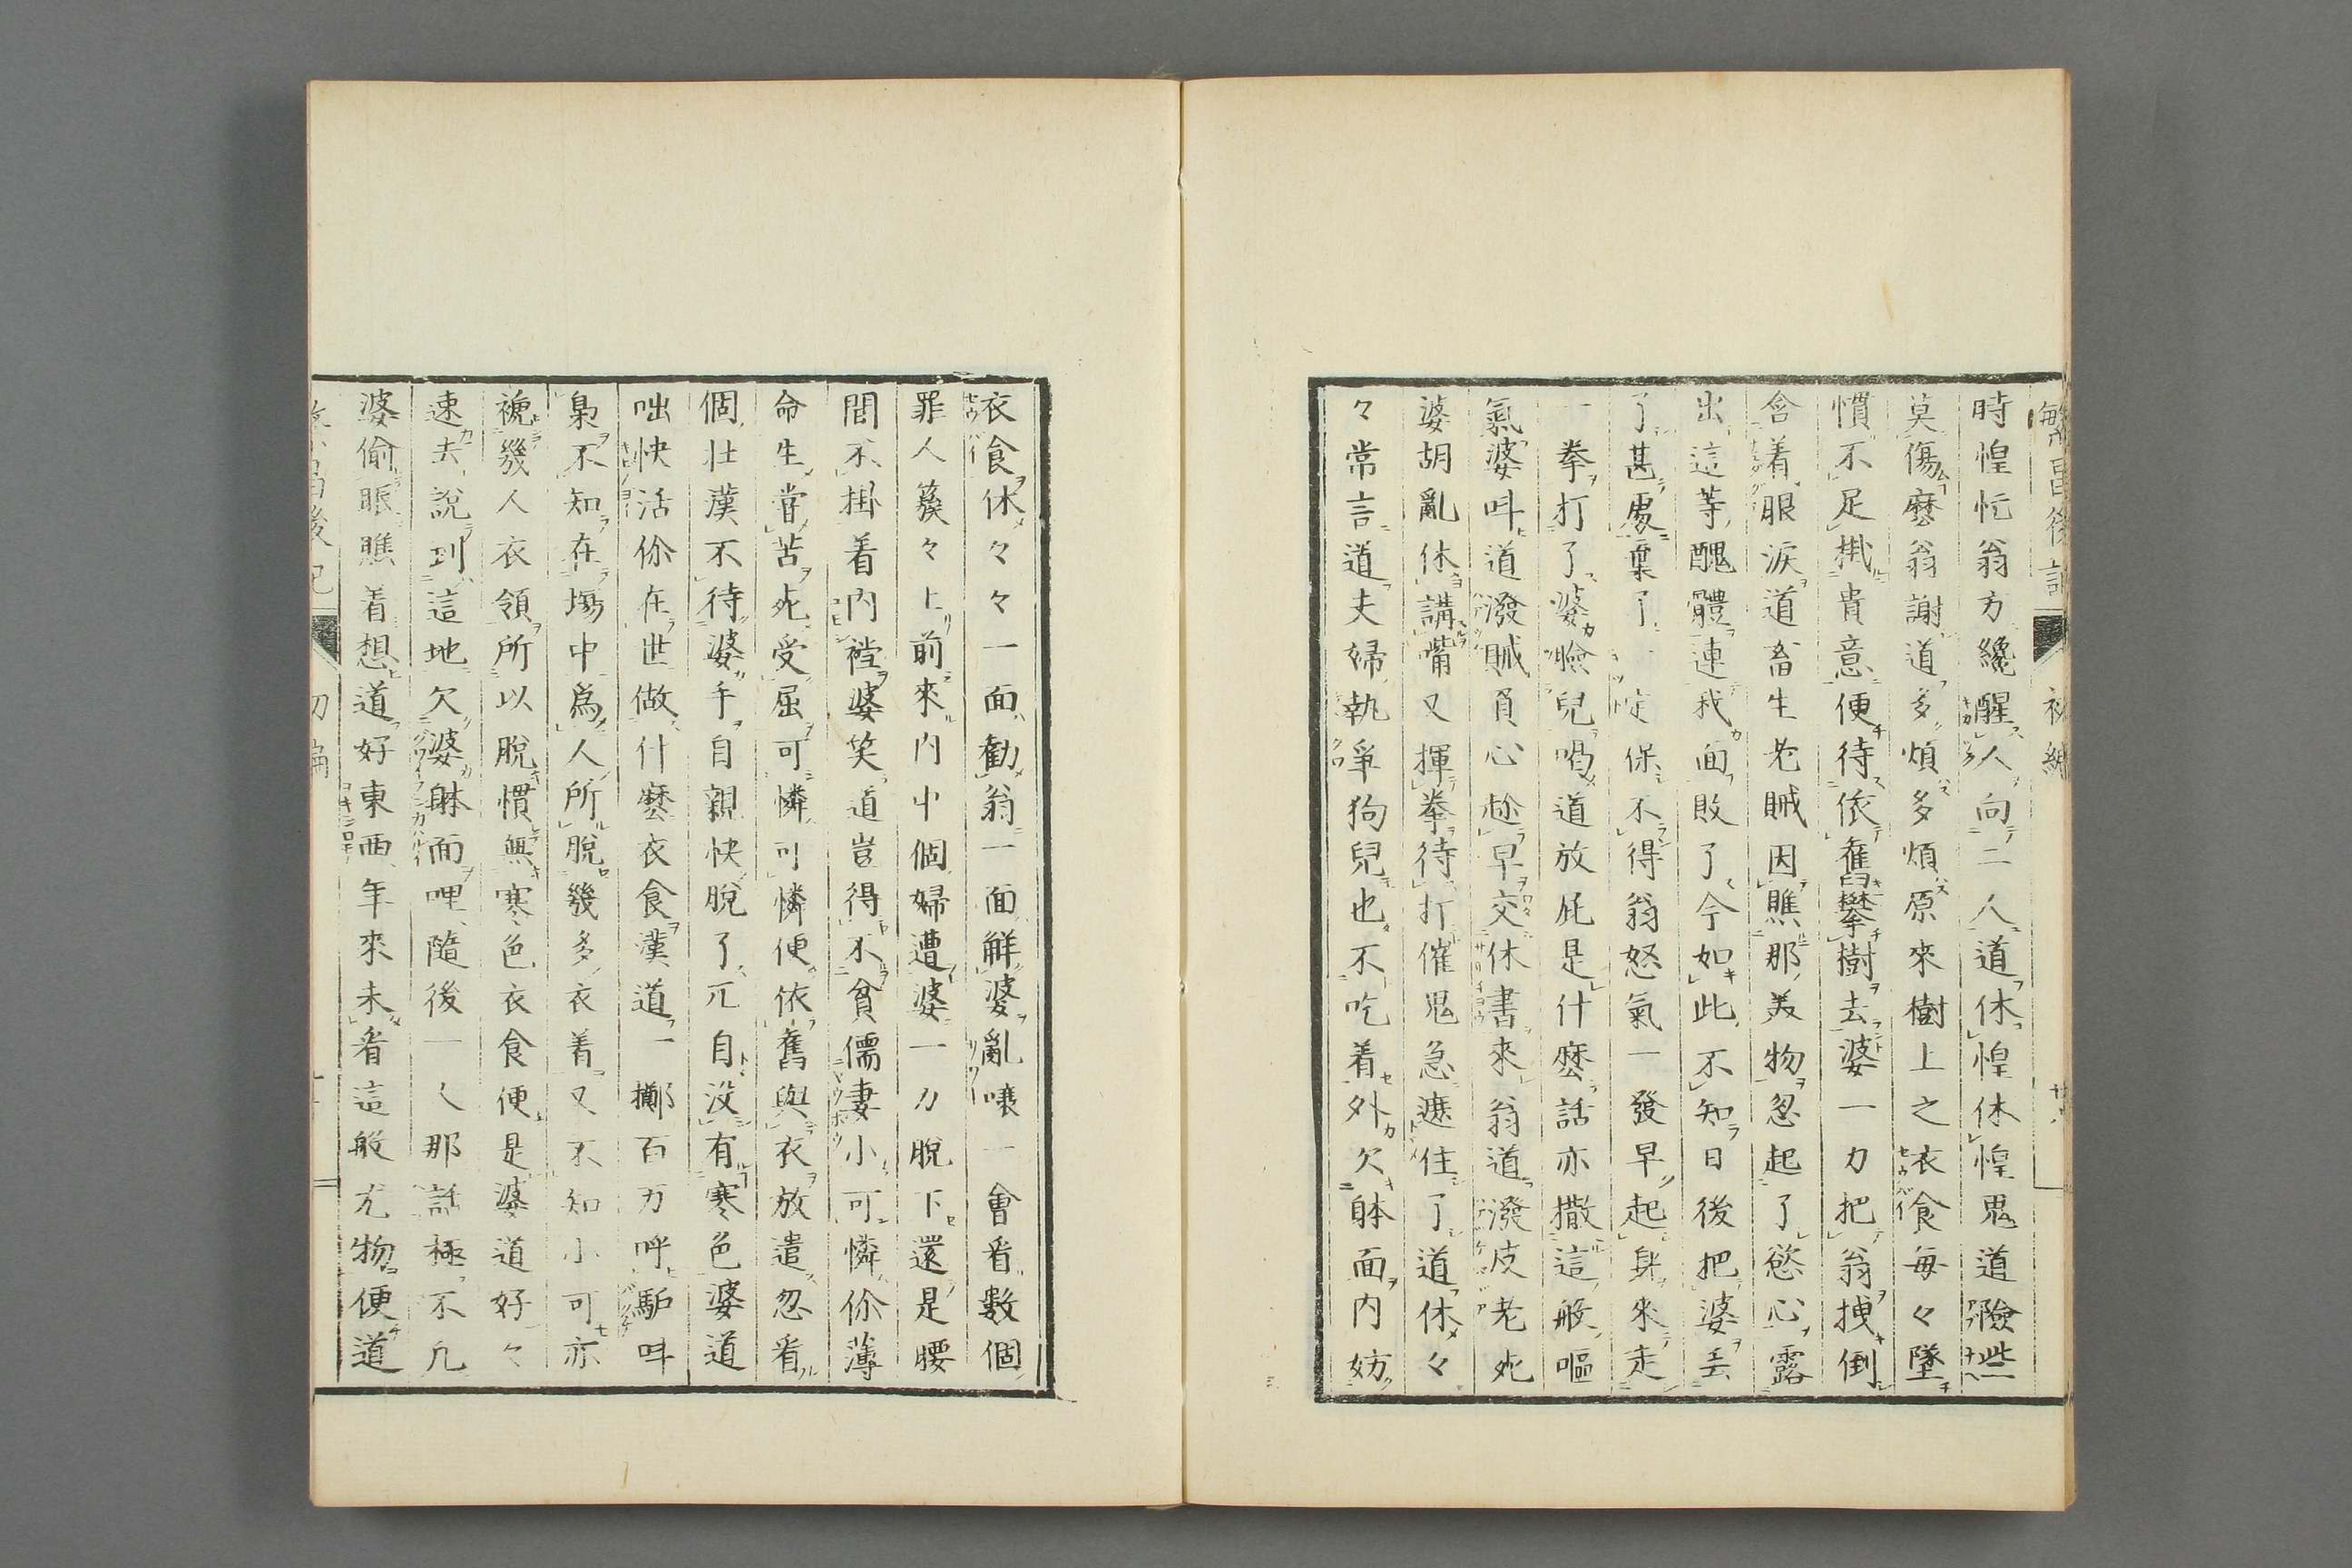 繁昌後記 初編
時惶忙翁方纔醒人向二人道休惶休惶鬼道險些
莫傷麼翁謝道多煩多煩原來樹上之衣食每々墜
慣不足掛貴意便待依舊攀樹去婆一力把翁拽倒
含着眼淚道畜生老賊因瞧那美物忽起了慾心露
出這等醜體連我面敗了今如此不知日後把婆丟
了甚處棄了一定保不得翁怒氣一發早起身來走
一拳打了婆臉兒喝道放屁是什麼話亦撒這般嘔
氣婆呌道潑賊負心趂早交休書來翁道潑皮老死
婆胡亂休講嘴又揮拳待打催鬼急遮住了道休々
々常言道夫婦執爭狗兒也不吃着外欠躰面內妨
衣食休々々一面勸翁一面觧婆亂嚷一會看數個
罪人簇々上前來內中個婦遭婆一力脫下還是腰
間不掛着內襠婆笑道豈得不貧儒妻小可憐你薄
命生嘗苦死受屈可憐可憐便依舊與衣放遣忽看
個壯漢不待婆手自親快脫了兀自没有寒色婆道
咄快活你在世做什麼衣食漢道一擲百万呼馿呌
梟不知在塲中爲人所脫幾多衣着又不知小可亦
褫幾人衣領所以脫慣無寒色衣食便是婆道好々
速去說到這地欠婆躰面哩隨後一人那話極不凡
婆偷眼瞧着想道好東西年來未看這般尤物便道